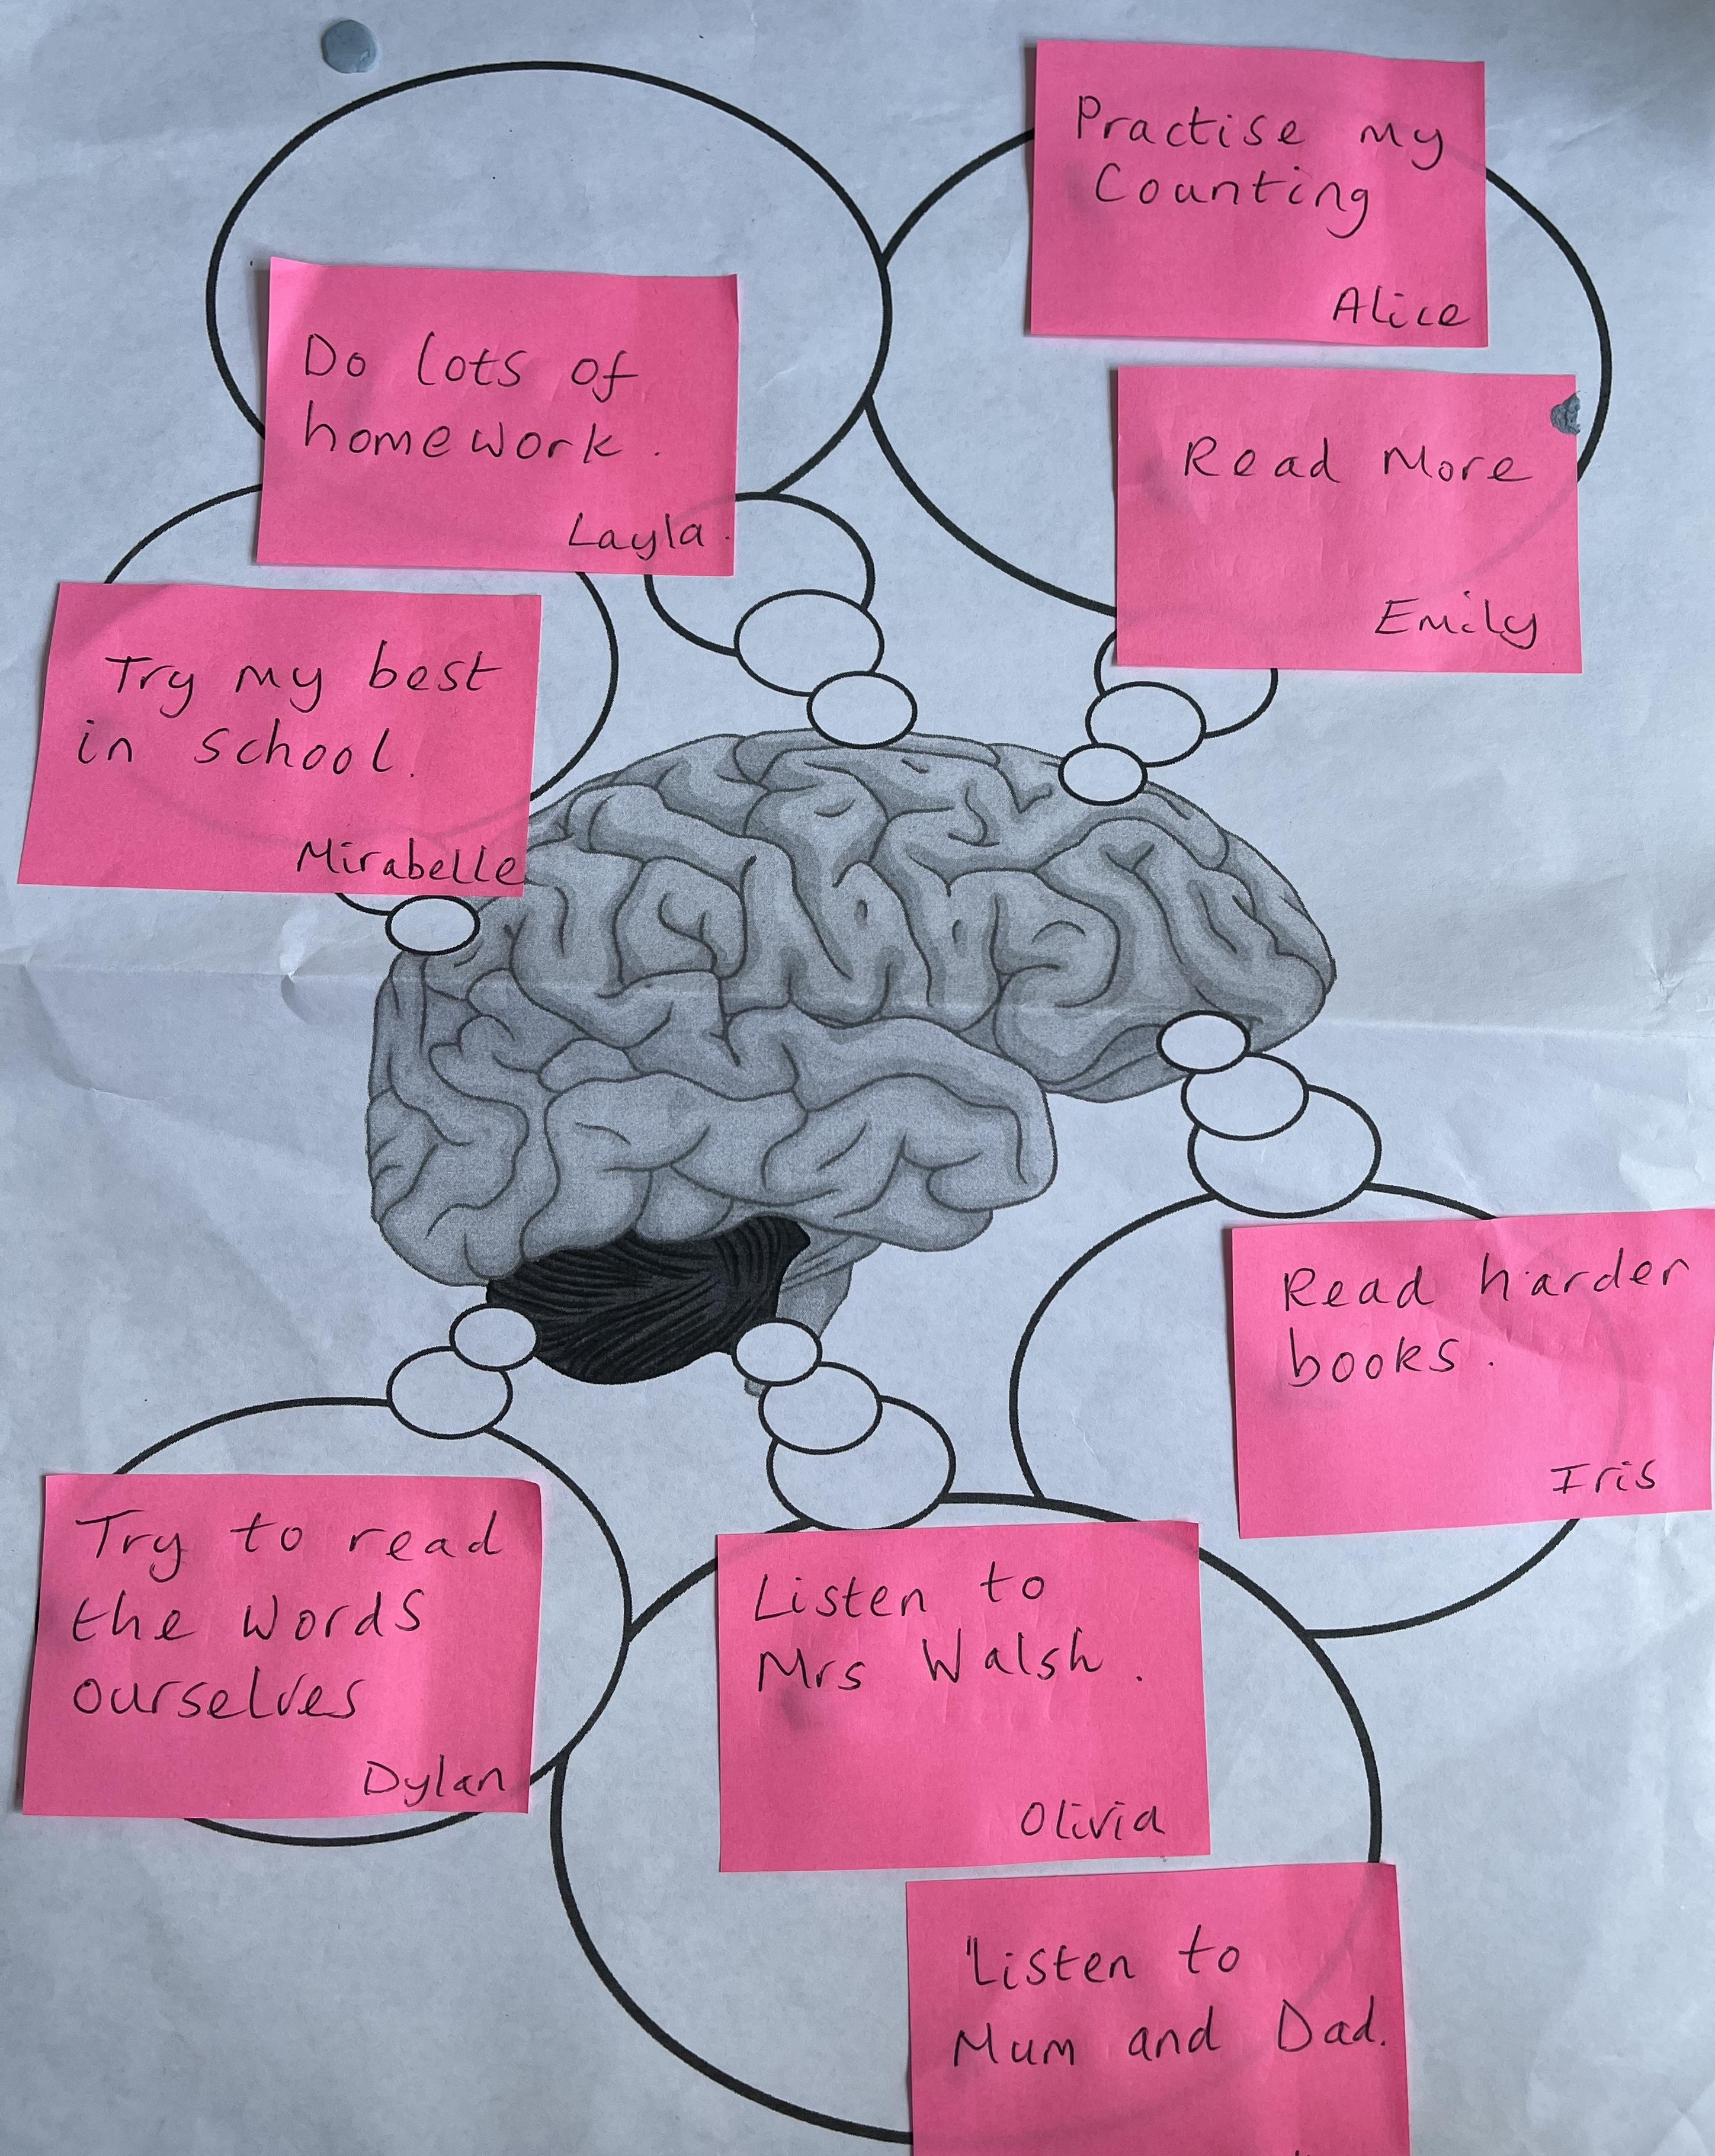 Practise my
Counting
Alice
Do lots of
homework.
Layla.
Read More
Emily
Try my best
in school.
Mirabelle
Read harder
books.
Iris
Try to read
the words
ourselves
Dylan
Listen to
Mrs Walsh.
Olivia
Listen to
Mum and Dad.